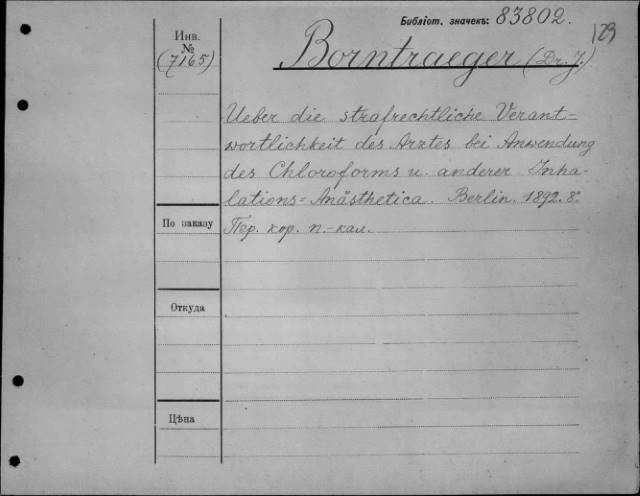 Библіот. значекъ: 83802.
123
Инв.
№
(7165)
Borntraeger (Dr. J.)
Ueber die strafrechtliche Verant=
wortlichkeit des Arztes bei Anwendung
des Chloroforms u. anderer Inha-
lations=Anästhetica. Berlin. 1892. 8º
По заказу
Пер. кор. п.-кал.
Откуда
Цѣна